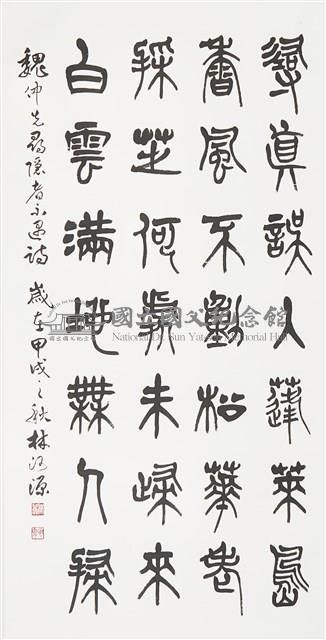 尋真誤入蓬萊島
香風不動松華老
採芝何處未歸來
白雲滿地無人掃
魏仲先尋隱者不遇詩 歲在甲戌之秋 林
國立國父紀念館
National Dr. Sun Yat-sen Memorial Hall